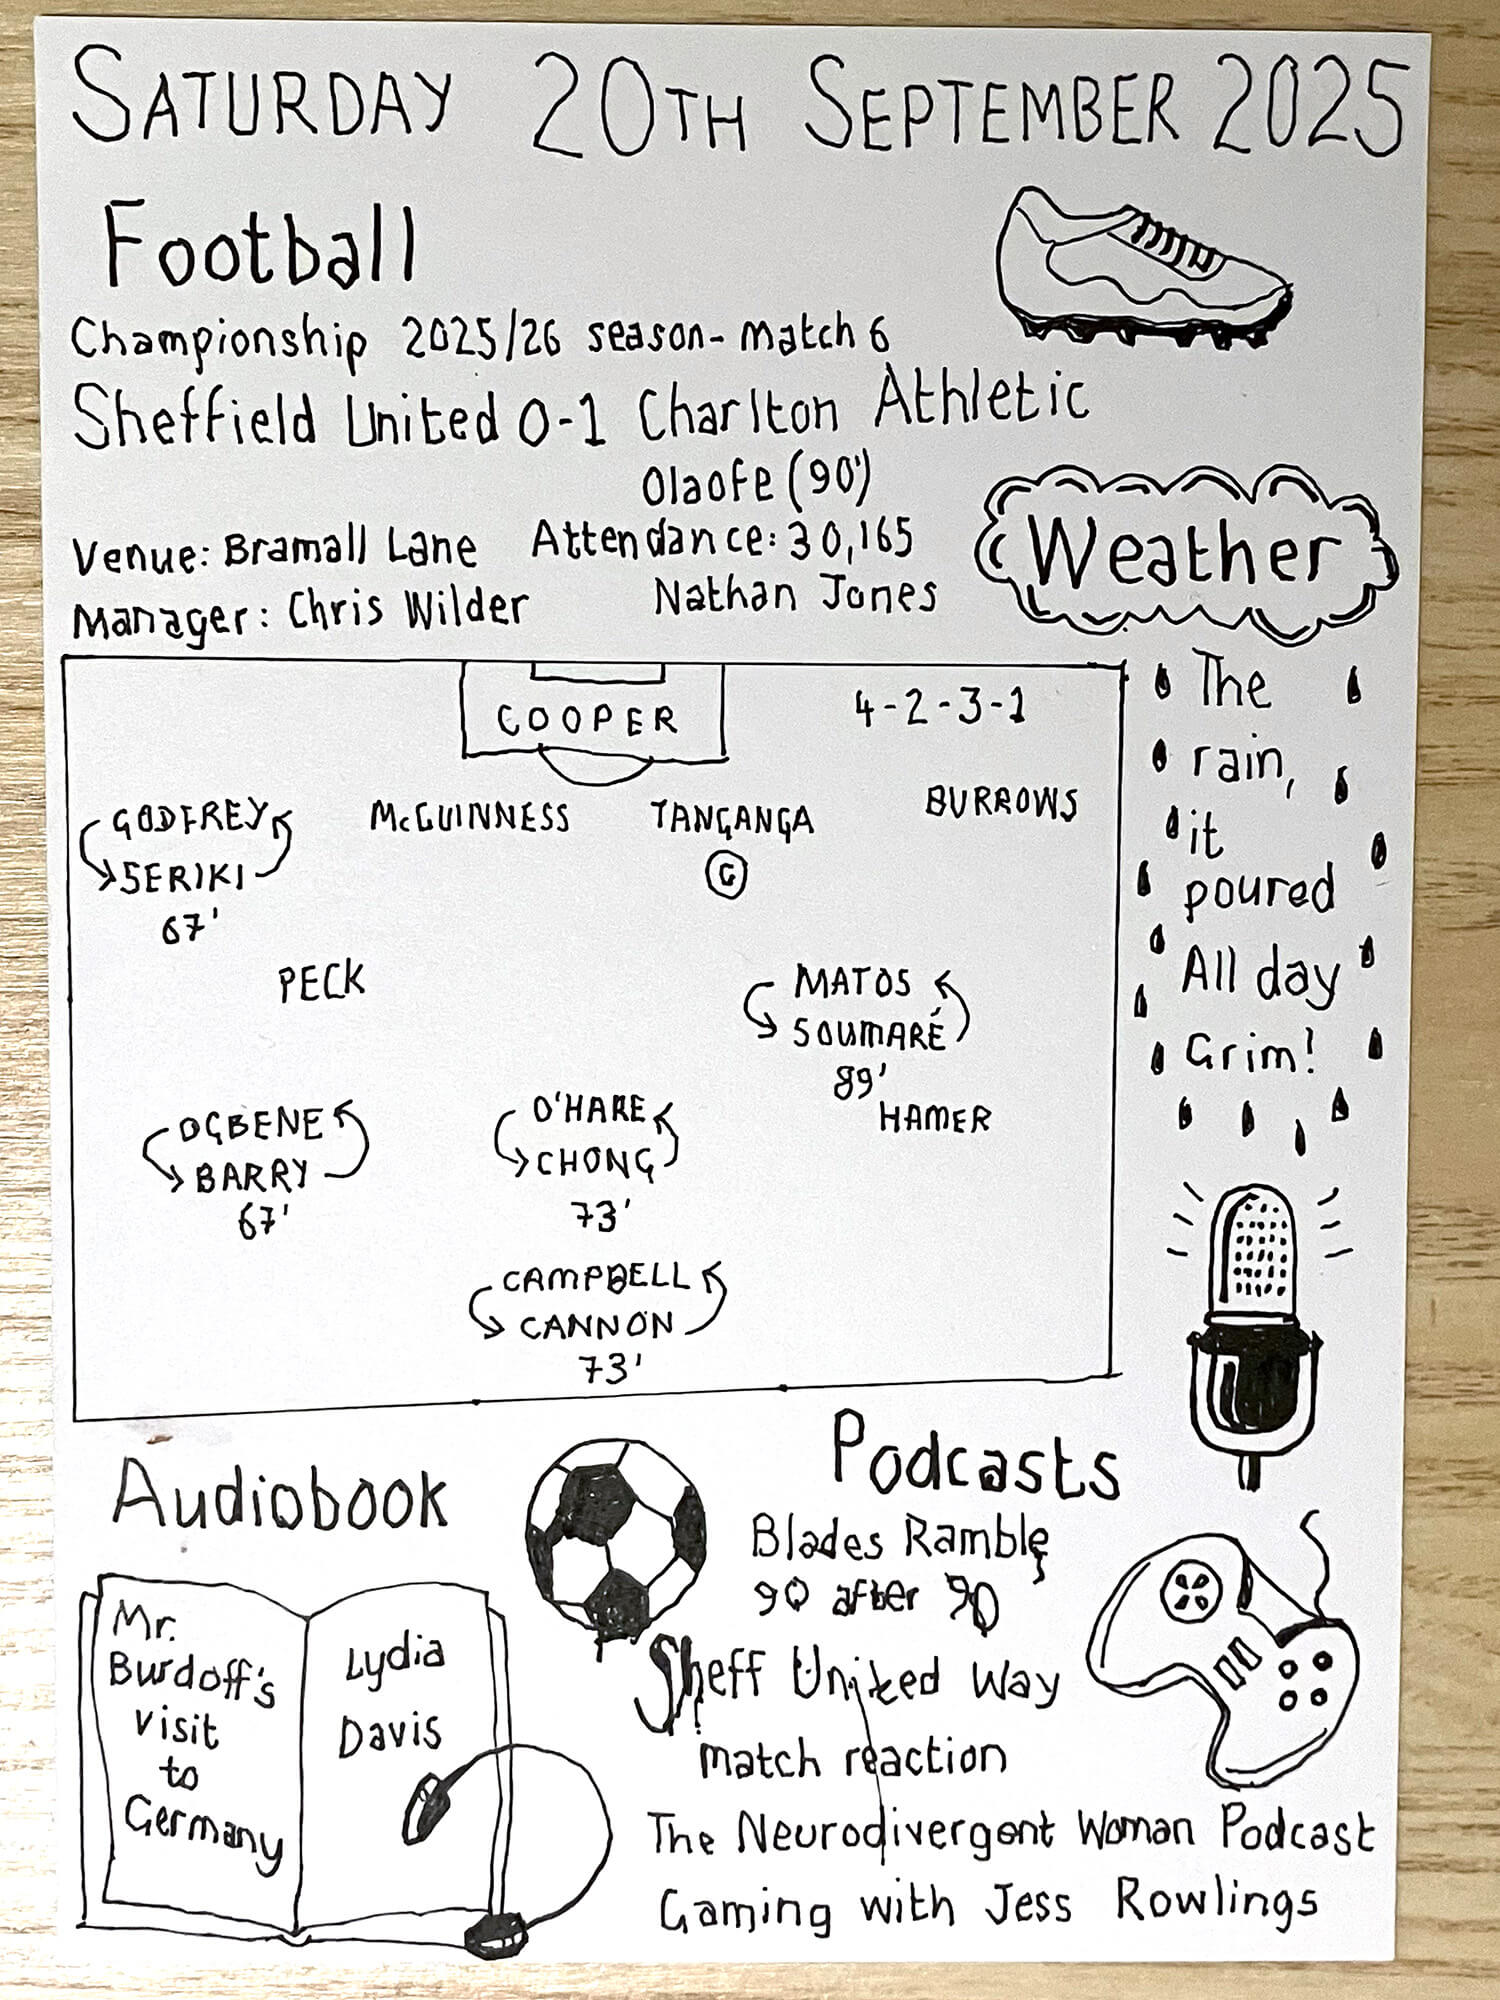 SATURDAY 20TH SEPTEMBER 2025
Football
Championship 2025/26 season - match 6
Sheffield United 0-1 Charlton Athletic
Olaofe (90')
Venue: Bramall Lane Attendance: 30,165
Manager: Chris Wilder Nathan Jones
COOPER
4-2-3-1
GODFREY McGUINNESS TANGANGA BURROWS
SERIKI
C
67'
PECK
MATOS
SOUMARÉ
89'
HAMER
OGBENE
BARRY
67'
O'HARE
CHONG
73'
CAMPBELL
CANNON
73'
Weather
The
rain,
it
poured
All day
Grim!
Audiobook
Mr.
Burdoff's
visit
to
Germany
Lydia
Davis
Podcasts
Blades Ramble
90 after 90
Sheff United Way
match reaction
The Neurodivergent Woman Podcast
Gaming with Jess Rowlings